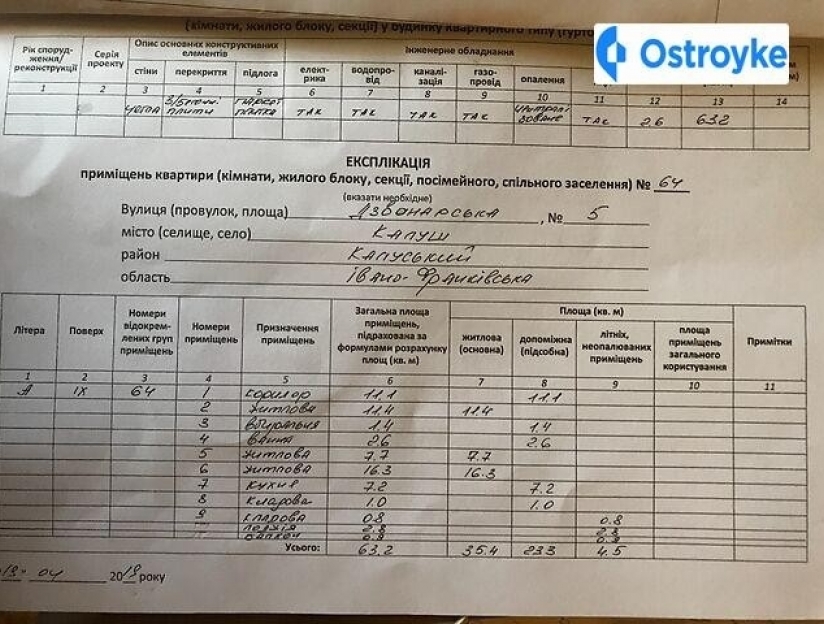 (кімнати, жилого блоку, секції) у будинку квартирного типу
Ostroyke
Рік споруд-ження/реконструкції Серія проекту Опис основних конструктивних елементів Інженерне обладнання
стіни перекриття підлога елект-рика водопро-від каналі-зація газо-провід опалення
1 2 3 4 5 6 7 8 9 10 11 12 13 14
плити так так так так так 2.6 632
ЕКСПЛІКАЦІЯ
приміщень квартири (кімнати, жилого блоку, секції, посімейного, спільного заселення) № 64
(вказати необхідне)
Вулиця (провулок, площа) Дзвонарська , № 5
місто (селище, село) Калуш
район Калуський
область Івано-Франківська
Літера Поверх Номери відокрем-лених груп приміщень Номери приміщень Призначення приміщень Загальна площа приміщень, підрахована за формулами розрахунку площ (кв. м) Площа (кв. м) Примітки
житлова (основна) допоміжна (підсобна) літніх, неопалюваних приміщень площа приміщень загального користування
1 2 3 4 5 6 7 8 9 10 11
А ІХ 64 1 коридор 11.1 11.1
2 житлова 11.4 11.4
3 вбиральня 1.4 1.4
4 ванна 2.6 2.6
5 житлова 7.7 7.7
6 житлова 16.3 16.3
7 кухня 7.2 7.2
8 кладова 1.0 1.0
9 кладова 0.8 0.8
лоджія 2.8 2.8
балкон 0.9 0.9
Усього: 63.2 35.4 23.3 4.5
04 2019 року